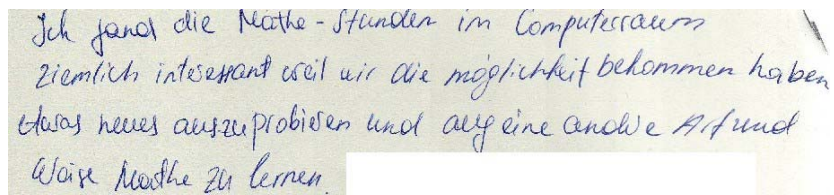 Ich fand die Mathe-Stunden im Computerraum
ziemlich interessant weil wir die möglichkeit bekommen haben
etwas neues auszuprobieren und auf eine andere Art und
Weise Mathe zu lernen.